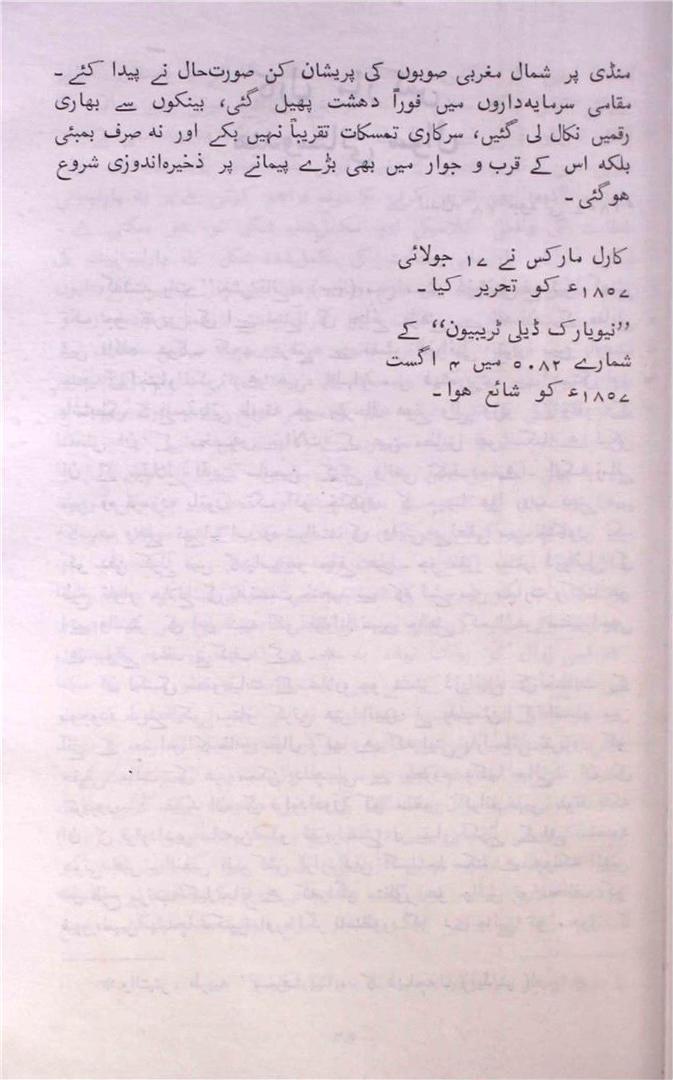 منڈی پر شمال مغربی صوبوں کی پریشان کن صورت‌حال نے پیدا کئے۔
مقامی سرمایہ‌داروں میں فوراً دھشت پھیل گئی، بینکوں سے بھاری
رقمیں نکال لی گئیں، سرکاری تمسکات تقریباً نہیں بکے اور نہ صرف بمبئی
بلکہ اس کے قرب و جوار میں بھی بڑے پیمانے پر ذخیرہ‌اندوزی شروع
ھوگئی۔
کارل مارکس نے ۱۷ جولائی
۱۸۵۷ء کو تحریر کیا۔
”نیویارک ڈیلی ٹریبیون“ کے
شمارے ۵۰۸۲ میں ۴ اگست
۱۸۵۷ء کو شائع ھوا۔